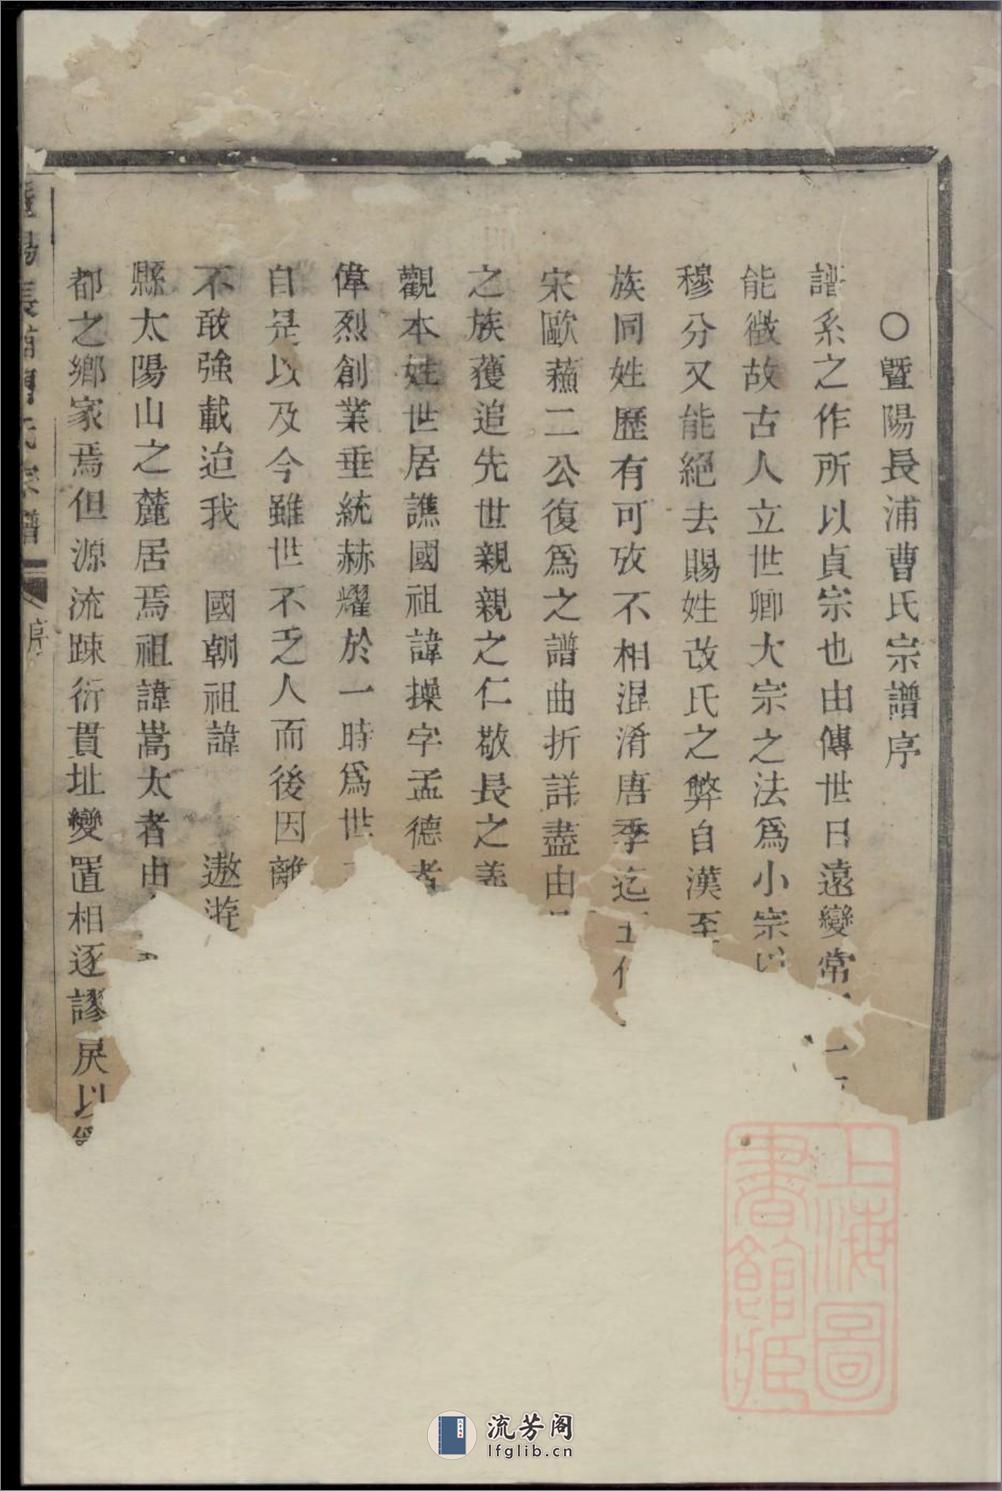 〇暨陽長浦曹氏宗譜序
譜系之作所以貞宗也由傳世日遠變常
能徴故古人立世卿大宗之法爲小宗
穆分又能絕去賜姓改氏之弊自漢至
族同姓歷有可攷不相混淆唐季迄五代
宋歐蘓二公復爲之譜曲折詳盡由
之族獲追先世親親之仁敬長之義
觀本姓世居譙國祖諱操字孟德者
偉烈創業垂統赫耀於一時爲世
自是以及今雖世不乏人而後因離
不敢強載迨我 國朝祖諱 遨遊
縣太陽山之麓居焉祖諱嵩太者由
都之鄉家焉但源流踈衍貫址變置相逐謬戾以
暨陽長浦曹氏宗譜 序
上海圖書館藏
流芳阁
lfglib.cn